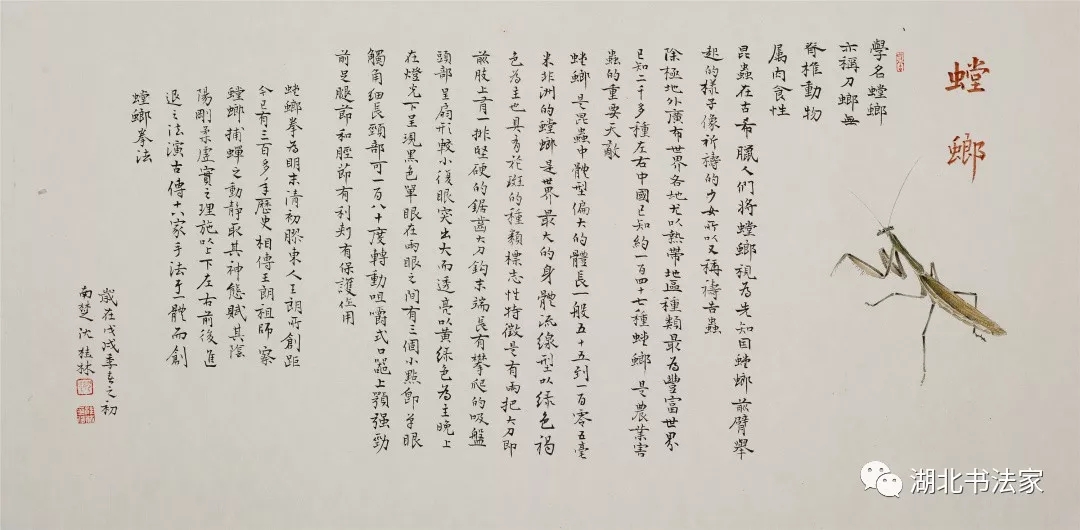 螳螂
學名螳螂
亦稱刀螂無
脊椎動物
属肉食性
昆蟲在古希臘人们將螳螂視為先知因螳螂前臂舉
起的樣子像祈禱的少女所以又稱禱告蟲
除極地外廣布世界各地尤以熱帶地區種類最為豐富世界
已知二千多種左右中國已知約一百四十七種螳螂是農業害
蟲的重要天敵
螳螂是昆蟲中體型偏大的體長一般五十五到一百零五毫
米非洲的螳螂是世界最大的身體流線型以绿色褐
色為主也具有花斑的種類標志性特徵是有兩把大刀即
前肢上有一排堅硬的鋸齒大刀鈎末端長有攀爬的吸盤
頭部呈扇形較小復眼突出大而透亮以黄绿色為主晚上
在燈光下呈現黑色單眼在兩眼之間有三個小點即单眼
觸角细長頸部可一百八十度轉動咀嚼式口器上顎强勁
前足腿節和脛節有利刺有保護作用
螳螂拳为明末清初膠東人王朗所創距
今已有三百多年歷史相傳王朗祖師察
螳螂捕蟬之動静取其神態賦其陰
陽剛柔虚實之理施以上下左右前後進
退之法演古傳十八家手法于一體而創
螳螂拳法
歲在戊戌季春之初
南楚沈桂林
湖北书法家